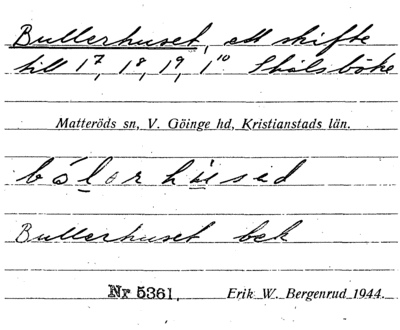 Bullerhuset, ett skifte
till 1⁷, 1⁸, 1⁹, 1¹⁰ Skålsböke
Matteröds sn, V. Göinge hd, Kristianstads län.
bólərhùsed
Bullerhuset bek
Nr 5361. Erik W. Bergenrud 1944.